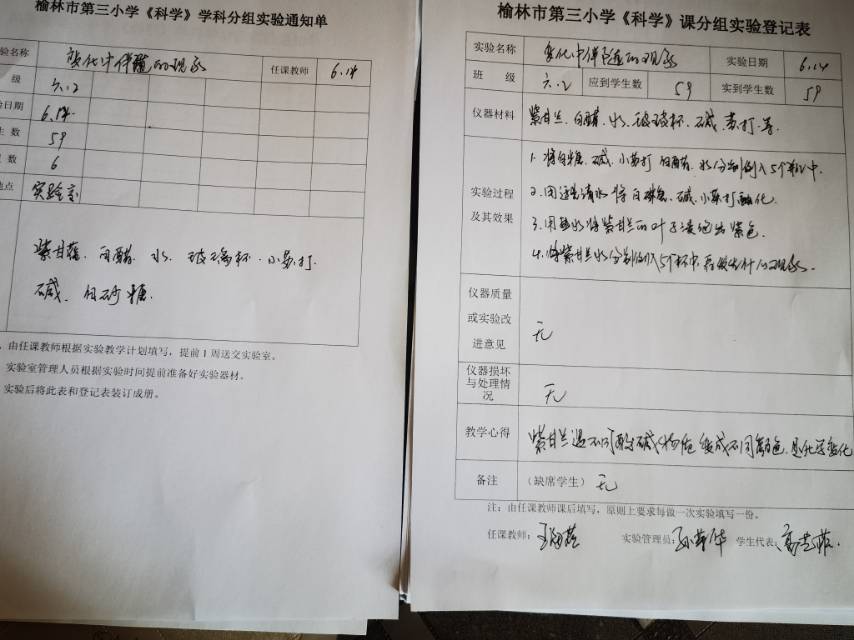 榆林市第三小学《科学》学科分组实验通知单
验名称 变化中伴随的现象 任课教师 6.14
级 六.2
日期 6.14
生数 59
数 6
地点 实验室
紫甘蓝、白醋、水、玻璃杯、小苏打、
碱、白砂糖.
由任课教师根据实验教学计划填写，提前1周送交实验室。
实验室管理人员根据实验时间提前准备好实验器材。
实验后将此表和登记表装订成册。
榆林市第三小学《科学》课分组实验登记表
实验名称 变化中伴随的现象 实验日期 6.14
班 级 六.2 应到学生数 59 实到学生数 59
仪器材料 紫甘兰、白醋、水、玻璃杯、碱、苏打、
实验过程及其效果
1. 将白糖、碱、小苏打 白醋、水分别倒入5个杯中
2. 用清水将白糖、碱、小苏打融化.
3. 用水将紫甘兰的叶子浸泡出紫色.
4. 将紫甘兰水分别倒入5个杯中, 现象.
仪器质量或实验改进意见 无
仪器损坏与处理情况 无
教学心得 紫甘兰遇不同酸碱物质变成不同颜色.是化学变化
备注 （缺席学生） 无
注：由任课教师课后填写，原则上要求每做一次实验填写一份。
任课教师： 实验管理员： 学生代表：